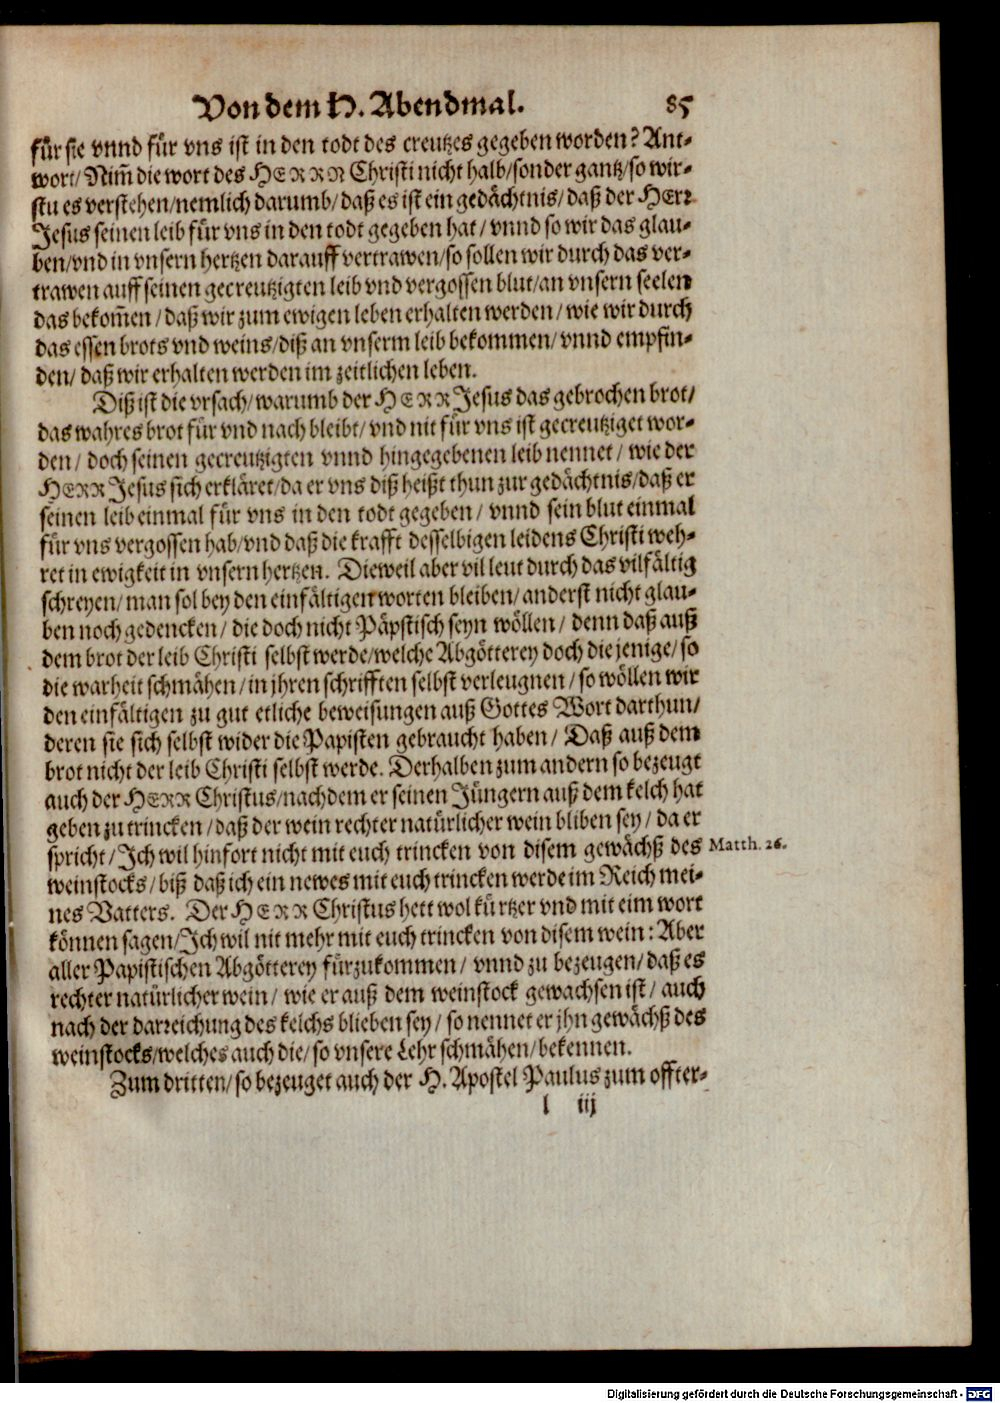 Von dem H. Abendmal. 85
für sie vnnd für vns ist in den todt des creutzes gegeben worden? Ant-
wort/ Nim̃ die wort des HERRN Christi nicht halb/sonder gantz/so wir-
stu es verstehen/nemlich darumb/ daß es ist ein gedächtnis/ daß der HErꝛ
Jesus seinen leib für vns in den todt gegeben hat/ vnnd so wir das glau-
ben/vnd in vnsern hertzen darauff vertrawen/so sollen wir durch das ver-
trawen auff seinen gecreutzigten leib vnd vergossen blut/an vnsern seelen
das bekom̃en/ daß wir zum ewigen leben erhalten werden/ wie wir durch
das essen brots vnd weins/ diß an vnserm leib bekommen/ vnnd empfin-
den/ daß wir erhalten werden im zeitlichen leben.
Diß ist die vrsach/ warumb der HERR Jesus das gebrochen brot/
das wahres brot für vnd nach bleibt/ vnd nit für vns ist gecreutziget wor-
den/ doch seinen gecreutzigten vnnd hingegebenen leib nennet/ wie der
HERR Jesus sich erkläret/da er vns diß heißt thun zur gedächtnis/daß er
seinen leib einmal für vns in den todt gegeben/ vnnd sein blut einmal
für vns vergossen hab/vnd daß die krafft desselbigen leidens Christi weh-
ret in ewigkeit in vnsern hertzen. Dieweil aber vil leut durch das vilfältig
schreyen/ man sol bey den einfältigen worten bleiben/ anderst nicht glau-
ben noch gedencken/ die doch nicht Päpstisch seyn wöllen/ denn daß auß
dem brot der leib Christi selbst werde/welche Abgötterey doch die jenige/ so
die warheit schmähen/ in jhren schrifften selbst verleugnen/ so wöllen wir
den einfältigen zu gut etliche beweisungen auß Gottes Wort darthun/
deren sie sich selbst wider die Papisten gebraucht haben/ Daß auß dem
brot nicht der leib Christi selbst werde. Derhalben zum andern so bezeugt
auch der HERR Christus/nachdem er seinen Jüngern auß dem kelch hat
geben zu trincken/ daß der wein rechter natürlicher wein bliben sey/ da er
spricht/ Ich wil hinfort nicht mit euch trincken von disem gewächß des Matth. 26.
weinstocks/ biß daß ich ein newes mit euch trincken werde im Reich mei-
nes Vatters. Der HERR Christus hett wol kürtzer vnd mit eim wort
können sagen/ Ich wil nit mehr mit euch trincken von disem wein: Aber
aller Papistischen Abgötterey fürzukommen/ vnnd zu bezeugen/ daß es
rechter natürlicher wein/ wie er auß dem weinstock gewachsen ist/ auch
nach der darꝛeichung des kelchs blieben sey/ so nennet er jhn gewächß des
weinstocks/welches auch die/ so vnsere Lehr schmähen/ bekennen.
Zum dritten/ so bezeuget auch der H. Apostel Paulus zum offter-
l iij
Digitalisierung gefördert durch die Deutsche Forschungsgemeinschaft - DFG